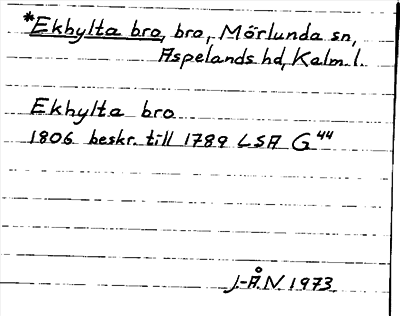 *Ekhylta bro, bro, Mörlunda sn,
Aspelands hd, Kalm. l.
Ekhylta bro
1806 beskr. till 1789 LSA G44
J.-Å.N. 1973